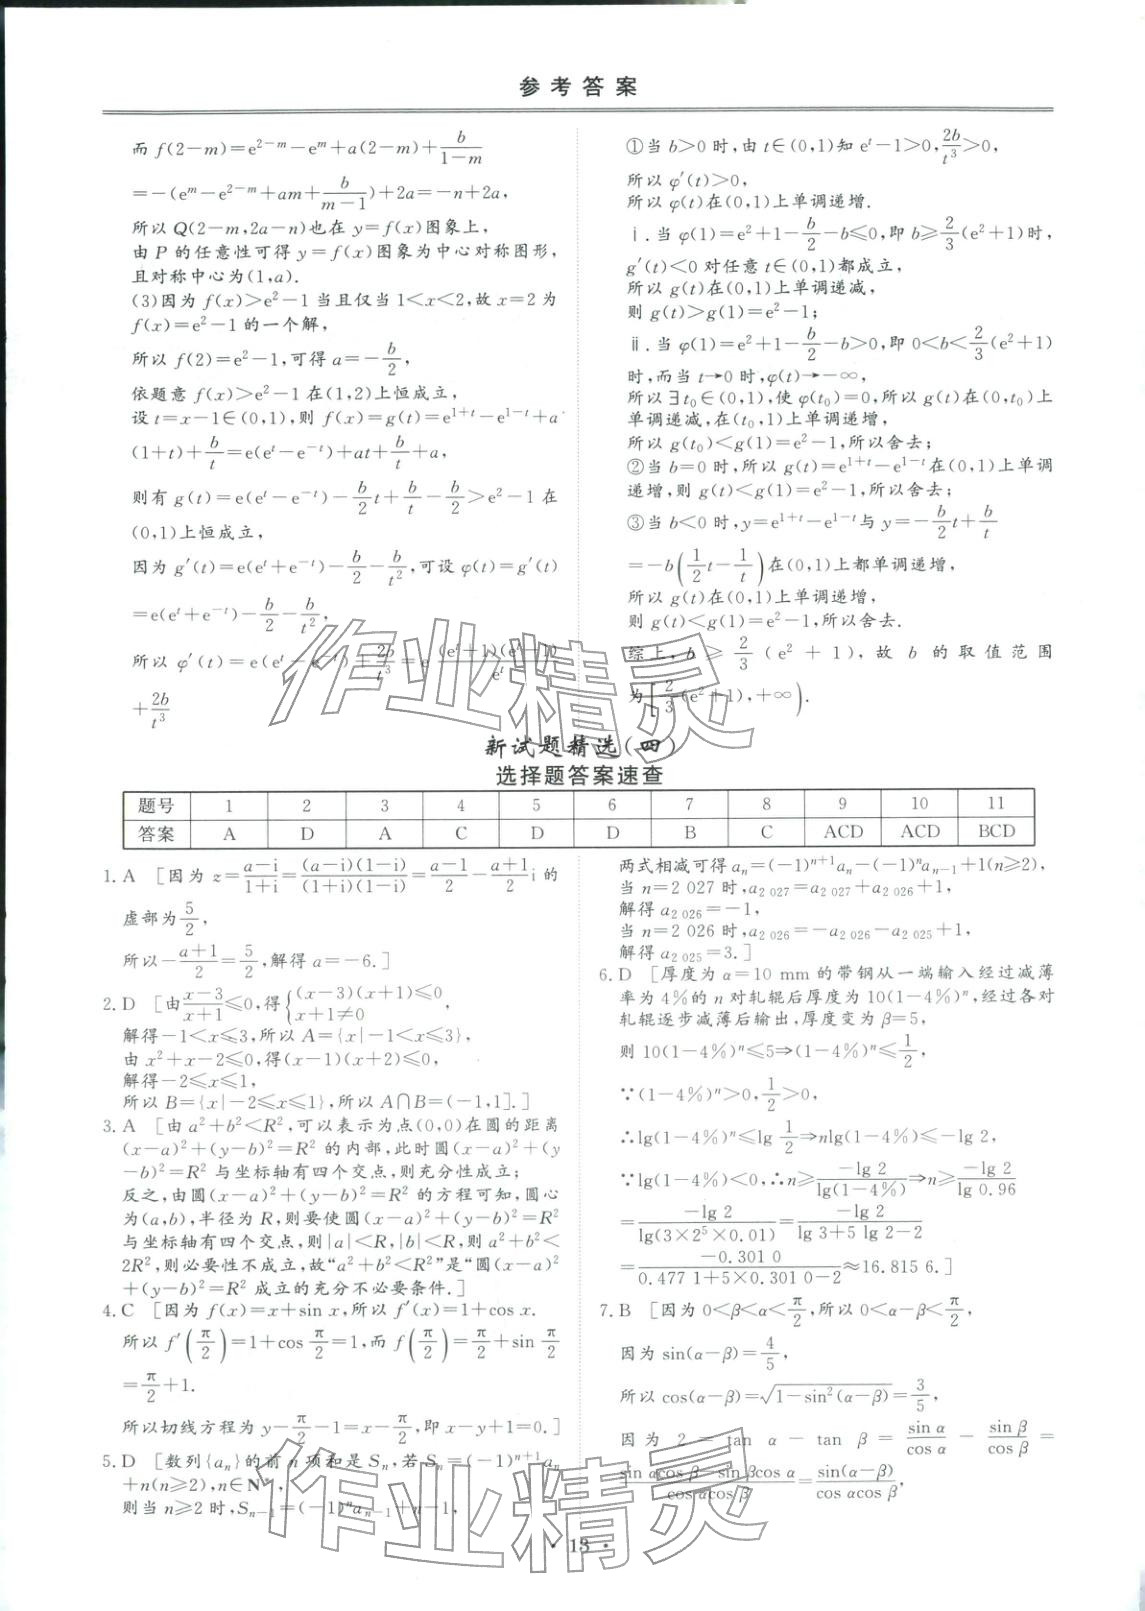 参考答案
而 f(2-m)=e^{2-m}-e^m+a(2-m)+\frac{b}{1-m}
=-(e^m-e^{2-m}+am+\frac{b}{m-1})+2a=-n+2a,
所以 Q(2-m,2a-n)也在 y=f(x)图象上,
由 P 的任意性可得 y=f(x)图象为中心对称图形,
且对称中心为(1,a).
(3)因为 f(x)>e²-1 当且仅当 1<x<2,故 x=2 为
f(x)=e²-1 的一个解,
所以 f(2)=e²-1,可得 a=-\frac{b}{2},
依题意 f(x)>e²-1 在(1,2)上恒成立,
设 t=x-1∈(0,1),则 f(x)=g(t)=e^{1+t}-e^{1-t}+a·
(1+t)+\frac{b}{t}=e(e^t-e^{-t})+at+\frac{b}{t}+a,
则有 g(t)=e(e^t-e^{-t})-\frac{b}{2}t+\frac{b}{t}-\frac{b}{2}>e²-1 在
(0,1)上恒成立,
因为 g′(t)=e(e^t+e^{-t})-\frac{b}{2}-\frac{b}{t²},可设 φ(t)=g′(t)
=e(e^t+e^{-t})-\frac{b}{2}-\frac{b}{t²},
所以 φ′(t)=e(e^t-e^{-t})+\frac{2b}{t³}=e·\frac{(e^t+1)(e^t-1)}{e^t}
+\frac{2b}{t³}
①当 b>0 时,由 t∈(0,1)知 e^t-1>0,\frac{2b}{t³}>0,
所以 φ′(t)>0,
所以 φ(t)在(0,1)上单调递增.
ⅰ.当 φ(1)=e²+1-\frac{b}{2}-b≤0,即 b≥\frac{2}{3}(e²+1)时,
g′(t)<0 对任意 t∈(0,1)都成立,
所以 g(t)在(0,1)上单调递减,
则 g(t)>g(1)=e²-1;
ⅱ.当 φ(1)=e²+1-\frac{b}{2}-b>0,即 0<b<\frac{2}{3}(e²+1)
时,而当 t→0 时,φ(t)→-∞,
所以∃t₀∈(0,1),使 φ(t₀)=0,所以 g(t)在(0,t₀)上
单调递减,在(t₀,1)上单调递增,
所以 g(t₀)<g(1)=e²-1,所以舍去;
②当 b=0 时,所以 g(t)=e^{1+t}-e^{1-t}在(0,1)上单调
递增,则 g(t)<g(1)=e²-1,所以舍去;
③当 b<0 时,y=e^{1+t}-e^{1-t}与 y=-\frac{b}{2}t+\frac{b}{t}
=-b(\frac{1}{2}t-\frac{1}{t})在(0,1)上都单调递增,
所以 g(t)在(0,1)上单调递增,
则 g(t)<g(1)=e²-1,所以舍去.
综上,b≥\frac{2}{3}(e²+1),故 b 的取值范围
为[\frac{2}{3}(e²+1),+∞).
新试题精选(四)
选择题答案速查
题号 1 2 3 4 5 6 7 8 9 10 11
答案 A D A C D D B C ACD ACD BCD
1.A [因为 z=\frac{a-i}{1+i}=\frac{(a-i)(1-i)}{(1+i)(1-i)}=\frac{a-1}{2}-\frac{a+1}{2}i 的
虚部为\frac{5}{2},
所以-\frac{a+1}{2}=\frac{5}{2},解得 a=-6.]
2.D [由\frac{x-3}{x+1}≤0,得{(x-3)(x+1)≤0, x+1≠0,
解得-1<x≤3,所以 A={x|-1<x≤3},
由 x²+x-2≤0,得(x-1)(x+2)≤0,
解得-2≤x≤1,
所以 B={x|-2≤x≤1},所以 A∩B=(-1,1].]
3.A [由 a²+b²<R²,可以表示为点(0,0)在圆的距离
(x-a)²+(y-b)²=R² 的内部,此时圆(x-a)²+(y
-b)²=R² 与坐标轴有四个交点,则充分性成立;
反之,由圆(x-a)²+(y-b)²=R² 的方程可知,圆心
为(a,b),半径为 R,则要使圆(x-a)²+(y-b)²=R²
与坐标轴有四个交点,则|a|<R,|b|<R,则 a²+b²<
2R²,则必要性不成立,故“a²+b²<R²”是“圆(x-a)²
+(y-b)²=R² 成立的充分不必要条件.]
4.C [因为 f(x)=x+sin x,所以 f′(x)=1+cos x.
所以 f′(\frac{π}{2})=1+cos\frac{π}{2}=1,而 f(\frac{π}{2})=\frac{π}{2}+sin\frac{π}{2}
=\frac{π}{2}+1.
所以切线方程为 y-\frac{π}{2}-1=x-\frac{π}{2},即 x-y+1=0.]
5.D [数列{aₙ}的前 n 项和是 Sₙ,若 Sₙ=(-1)^{n+1}aₙ
+n(n≥2),n∈N*,
则当 n≥2 时,S_{n-1}=(-1)^n a_{n-1}+n-1,
两式相减可得 aₙ=(-1)^{n+1}aₙ-(-1)^n a_{n-1}+1(n≥2),
当 n=2 027 时,a_{2 027}=a_{2 027}+a_{2 026}+1,
解得 a_{2 026}=-1,
当 n=2 026 时,a_{2 026}=-a_{2 026}-a_{2 025}+1,
解得 a_{2 025}=3.]
6.D [厚度为 α=10 mm 的带钢从一端输入经过减薄
率为 4%的 n 对轧辊后厚度为 10(1-4%)^n,经过各对
轧辊逐步减薄后输出,厚度变为 β=5,
则 10(1-4%)^n≤5⇒(1-4%)^n≤\frac{1}{2},
∵(1-4%)^n>0,\frac{1}{2}>0,
∴lg(1-4%)^n≤lg \frac{1}{2}⇒nlg(1-4%)≤-lg 2,
∵lg(1-4%)<0,∴n≥\frac{-lg 2}{lg(1-4%)}⇒n≥\frac{-lg 2}{lg 0.96}
=\frac{-lg 2}{lg(3×2⁵×0.01)}=\frac{-lg 2}{lg 3+5lg 2-2}
=\frac{-0.301 0}{0.477 1+5×0.301 0-2}≈16.815 6.]
7.B [因为 0<β<α<\frac{π}{2},所以 0<α-β<\frac{π}{2},
因为 sin(α-β)=\frac{4}{5},
所以 cos(α-β)=\sqrt{1-sin²(α-β)}=\frac{3}{5},
因为 2=tan α-tan β=\frac{sin α}{cos α}-\frac{sin β}{cos β}=
\frac{sin αcos β-sin βcos α}{cos αcos β}=\frac{sin(α-β)}{cos αcos β},
· 13 ·
作业精灵
作业精灵